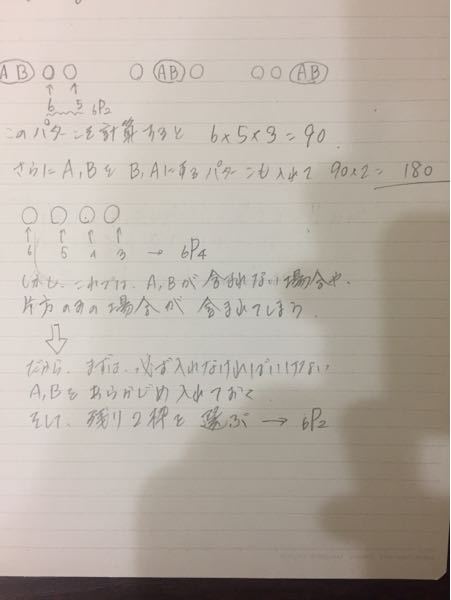 AB ○ ○ ○ AB ○ ○ ○ AB
↑ ↑
6 5 6P2
このパターンを計算すると 6×5×3=90
さらにA,BをB,Aにするパターンも入れて 90×2= 180
○ ○ ○ ○
↑ ↑ ↑ ↑
6 5 4 3 → 6P4
しかし、これでは、A,Bが含まれない場合や、
片方のみの場合が含まれてしまう
⇩
だから、まずは、必ず入れなければいけない
A,Bをあらかじめ入れておく
そして、残り2枠を選ぶ → 6P2